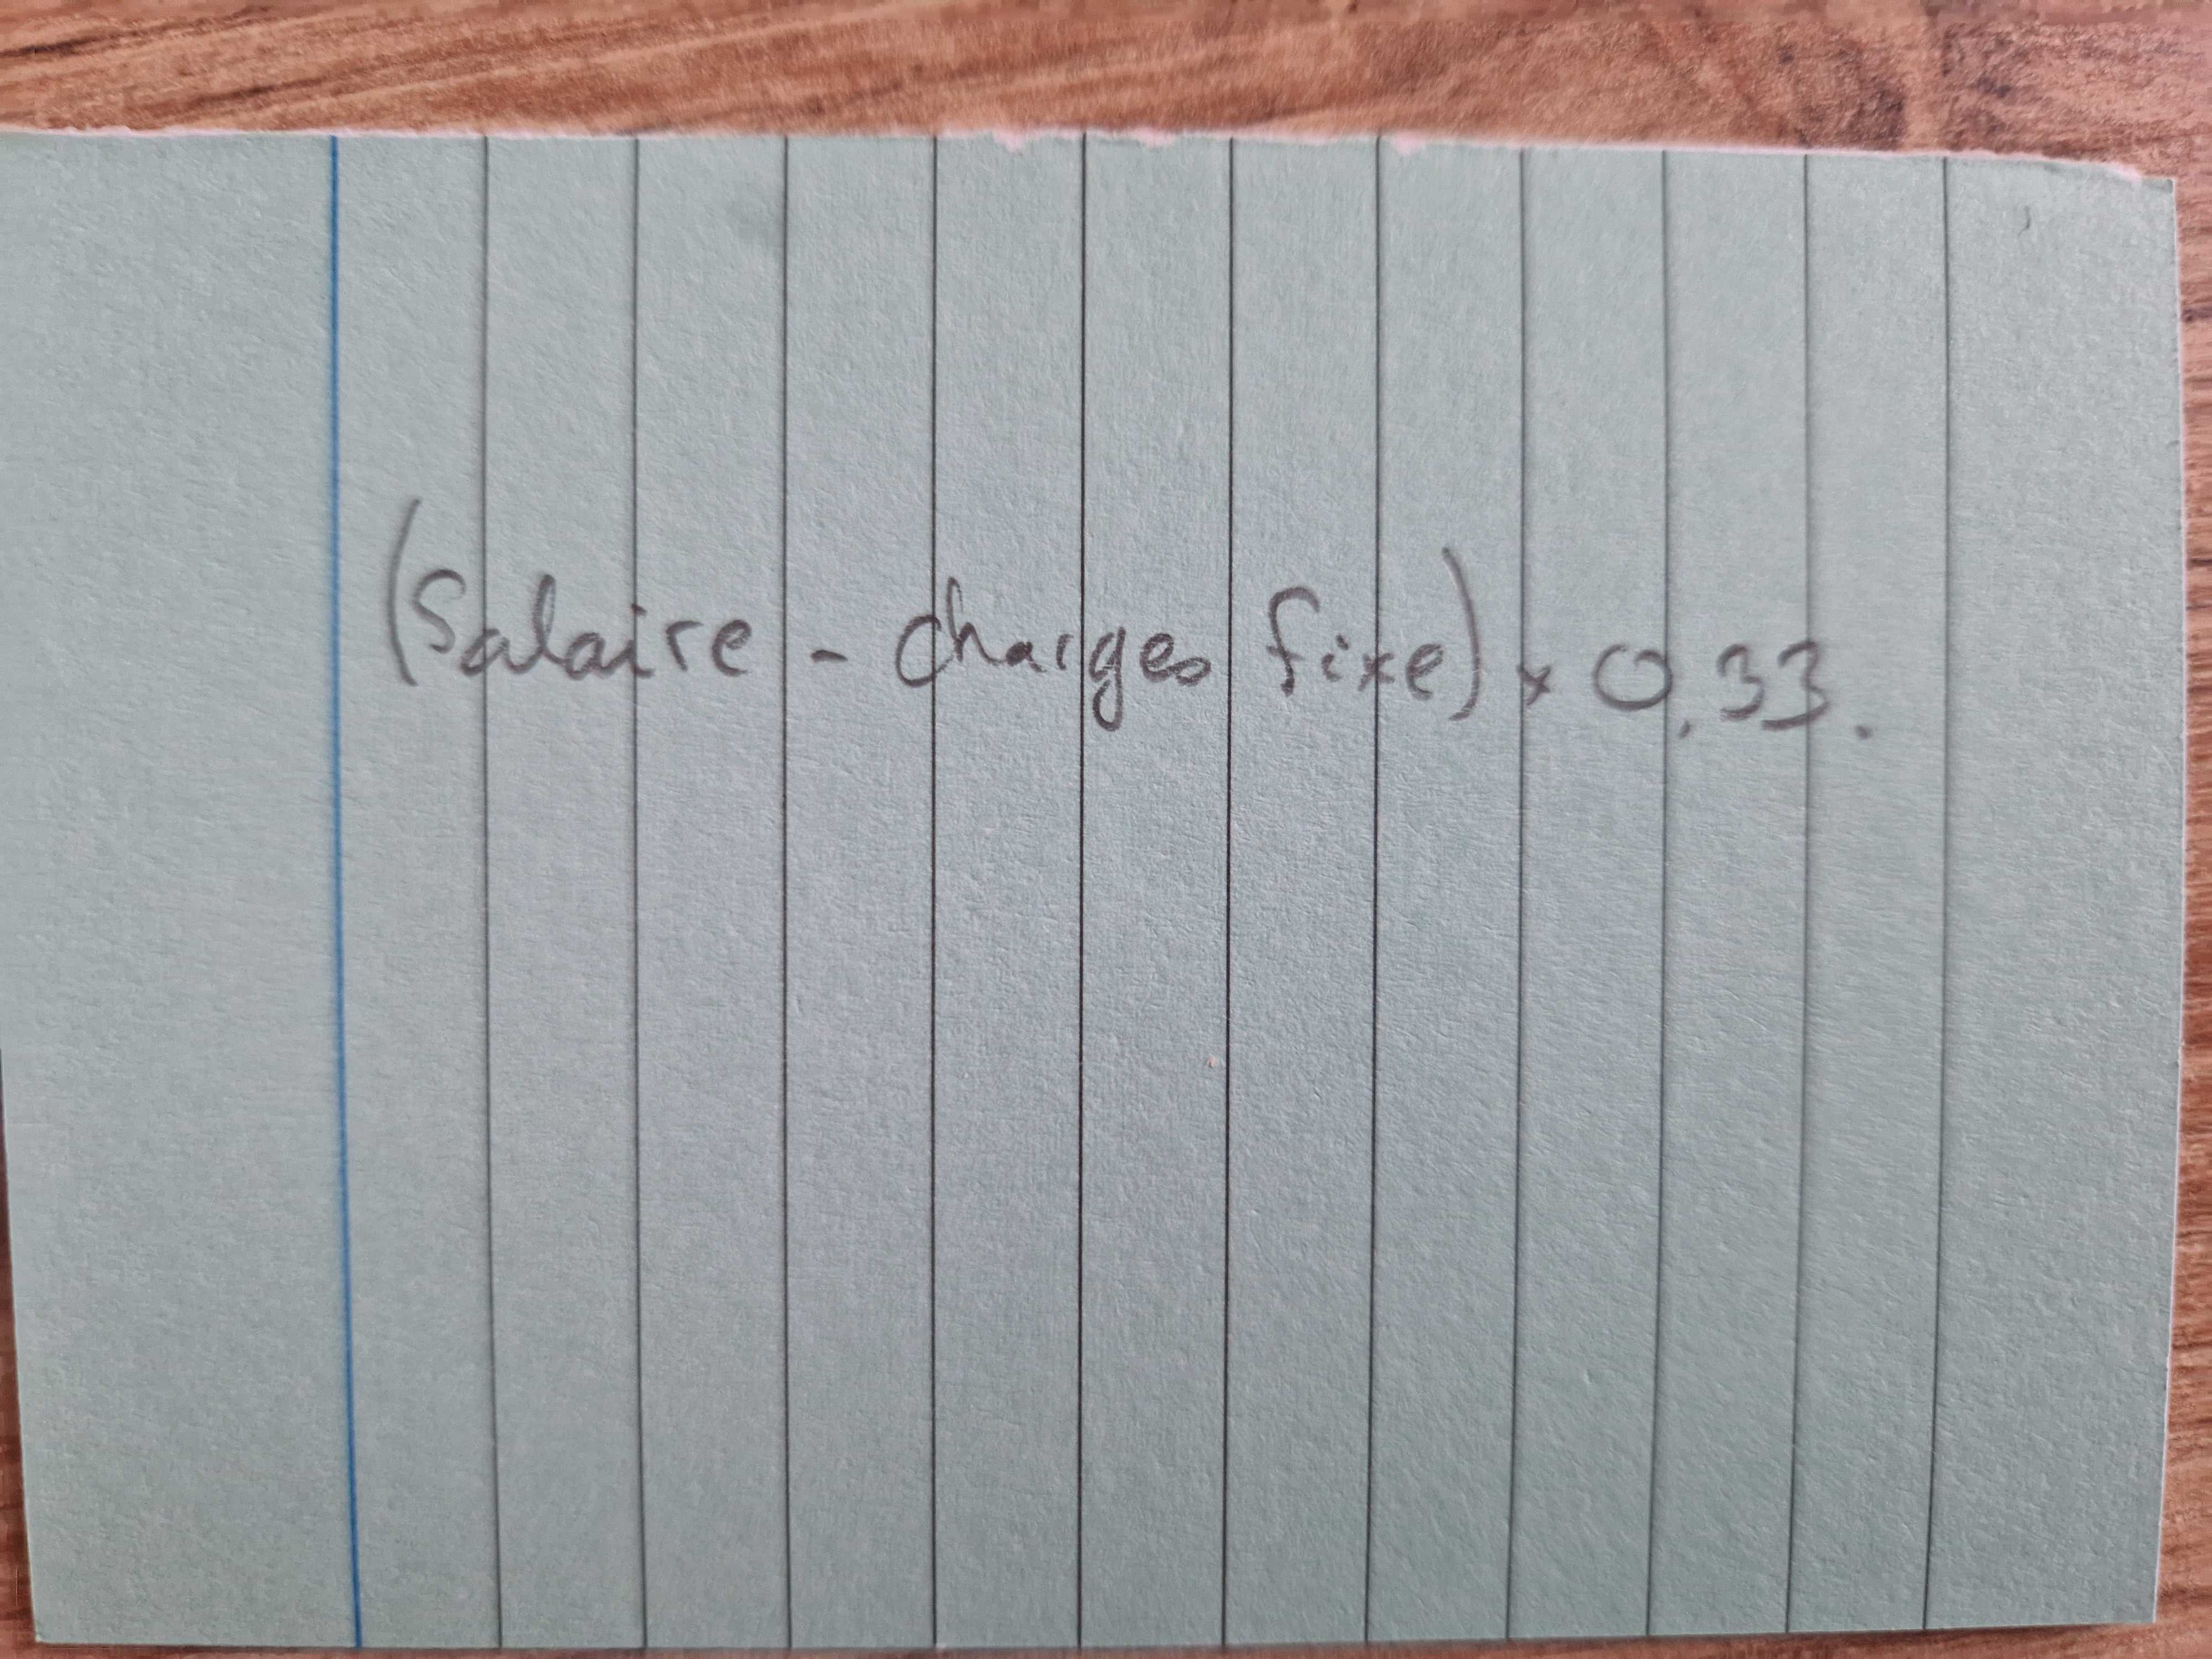 (Salaire - charges fixe) x 0,33.